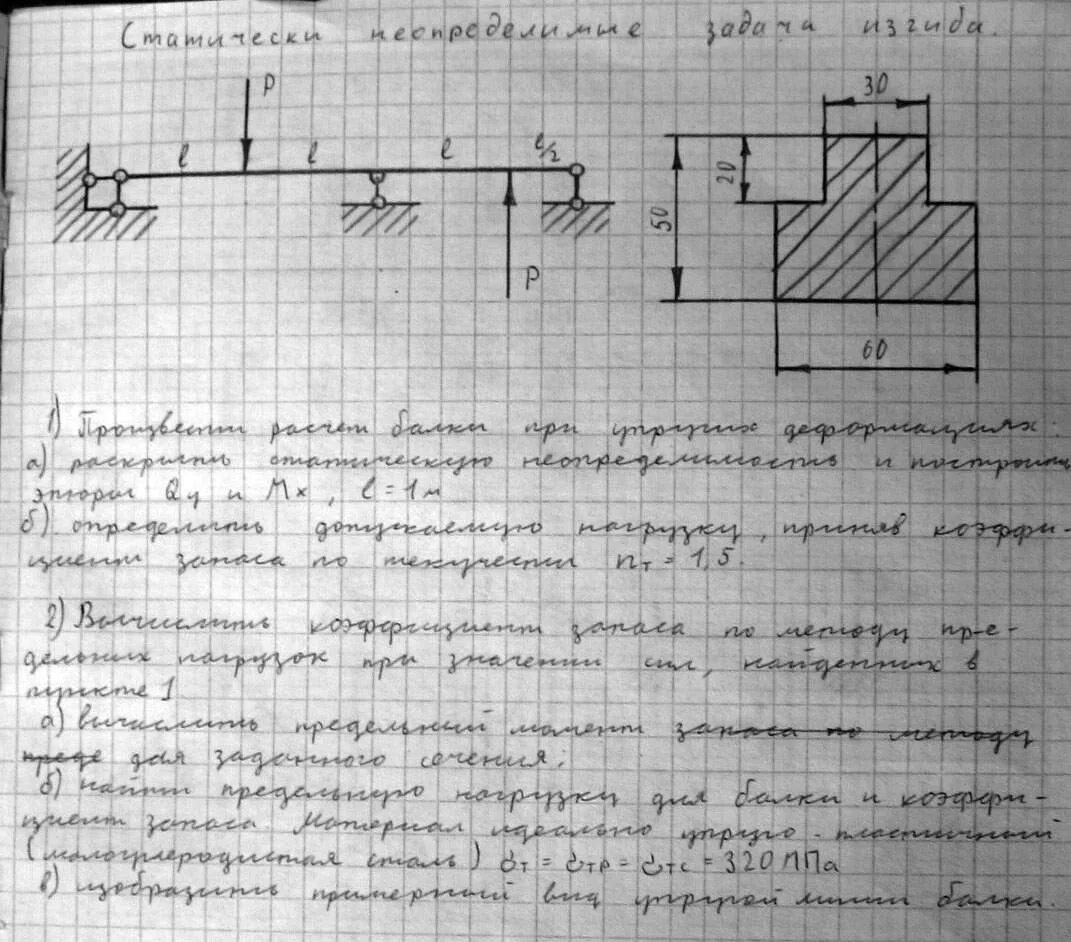 Статически неопределимые задача изгиба.
P
30
l
l
l
l/2
20
50
P
60
1) Произвести расчет балки при упругих деформациях:
а) раскрыть статическую неопределимость и построить
эпюры Qy и Mx, l = 1м
б) определить допускаемую нагрузку, приняв коэффи-
циент запаса по текучести nт = 1,5.
2) Вычислить коэффициент запаса по методу пре-
дельных нагрузок при значении сил, найденных в
пункте 1
а) вычислить предельный момент запаса по методу
преде для заданного сечения;
б) найти предельную нагрузку для балки и коэффи-
циент запаса Материал идеально упруго-пластичный
(малоуглеродистая сталь) σт = σтр = σтс = 320 МПа
в) изобразить примерный вид упругой линии балки.